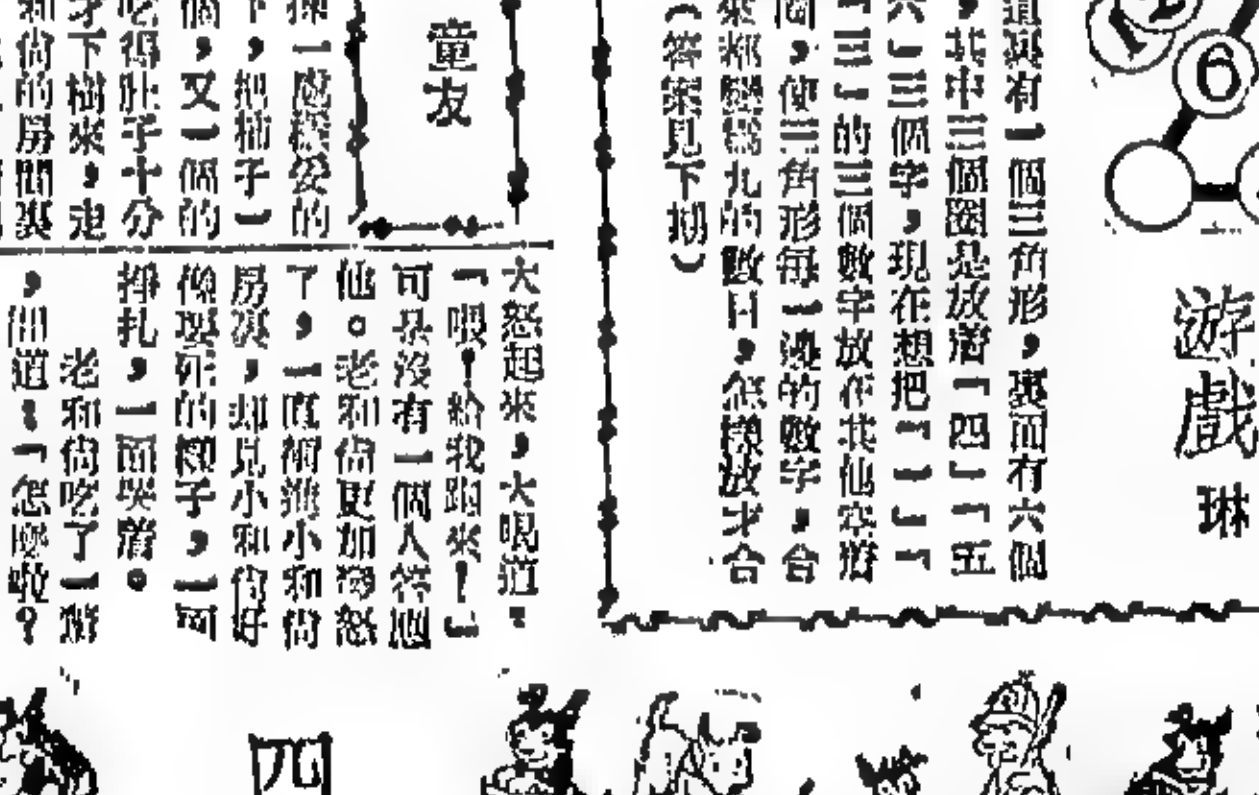 遊戲 琳
6
道眞有一個三角形，裏面有六個
，其中三個圈是放着「四」「五
六」三個字，現在想把「一」「
「三」的三個數字放在其他空着
圈，使三角形每一邊的數字，合
來都變爲九的數目，怎樣放才合
（答案見下期）
童友
的
下，把柿子）
個，又一個的
吃得肚子十分
才下樹來，走
和尙的房間裏
大怒起來，大喊道：
「喂！給我跑來！」
可是沒有一個人答應
他。老和尙更加發怒
了，一直衝進小和尙
房裏，却見小和尙好
像要死的樣子，一面
掙扎，一面哭着。
老和尙吃了一驚
，問道：「怎麽啦？
四